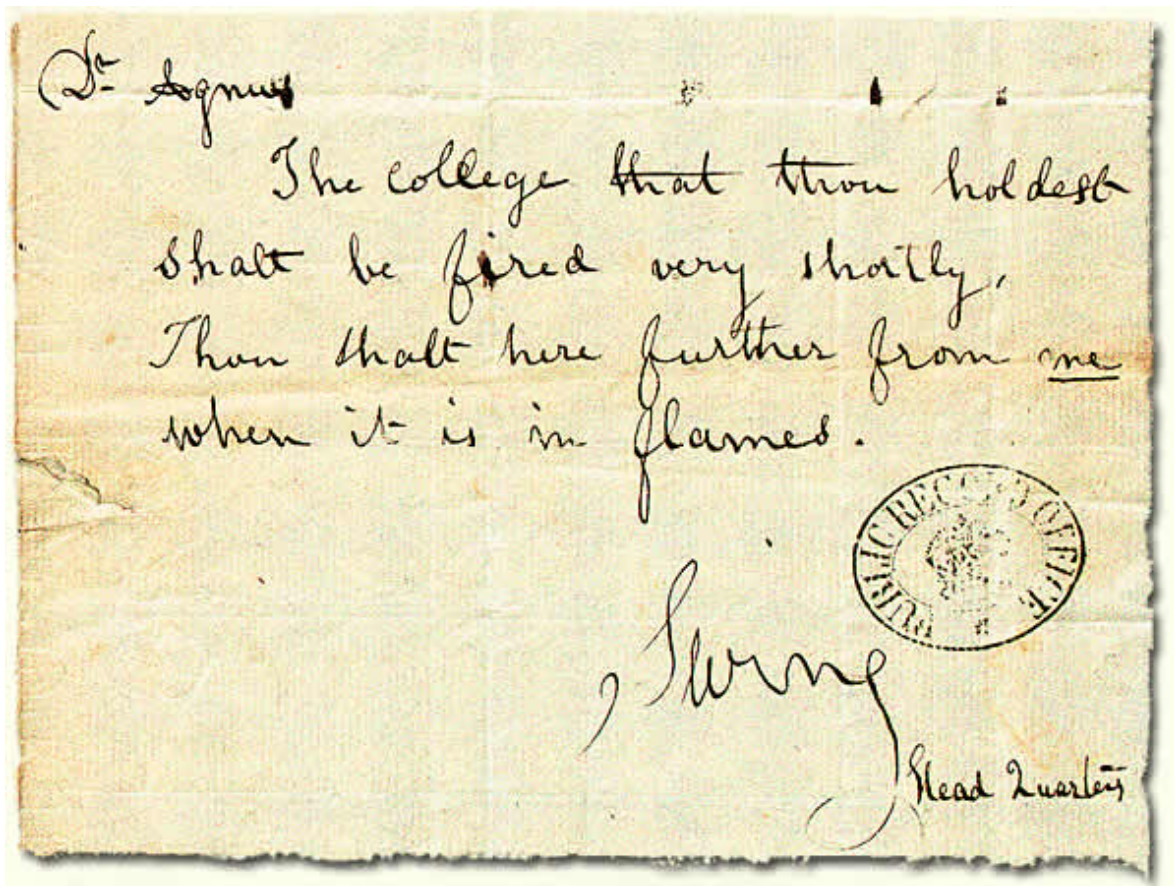 Dr
The college that thou holdest
shalt be fired very shortly.
Thou shalt here further from me
when it is in flames.
PUBLIC RECORD OFFICE
Swing
Head Quarters